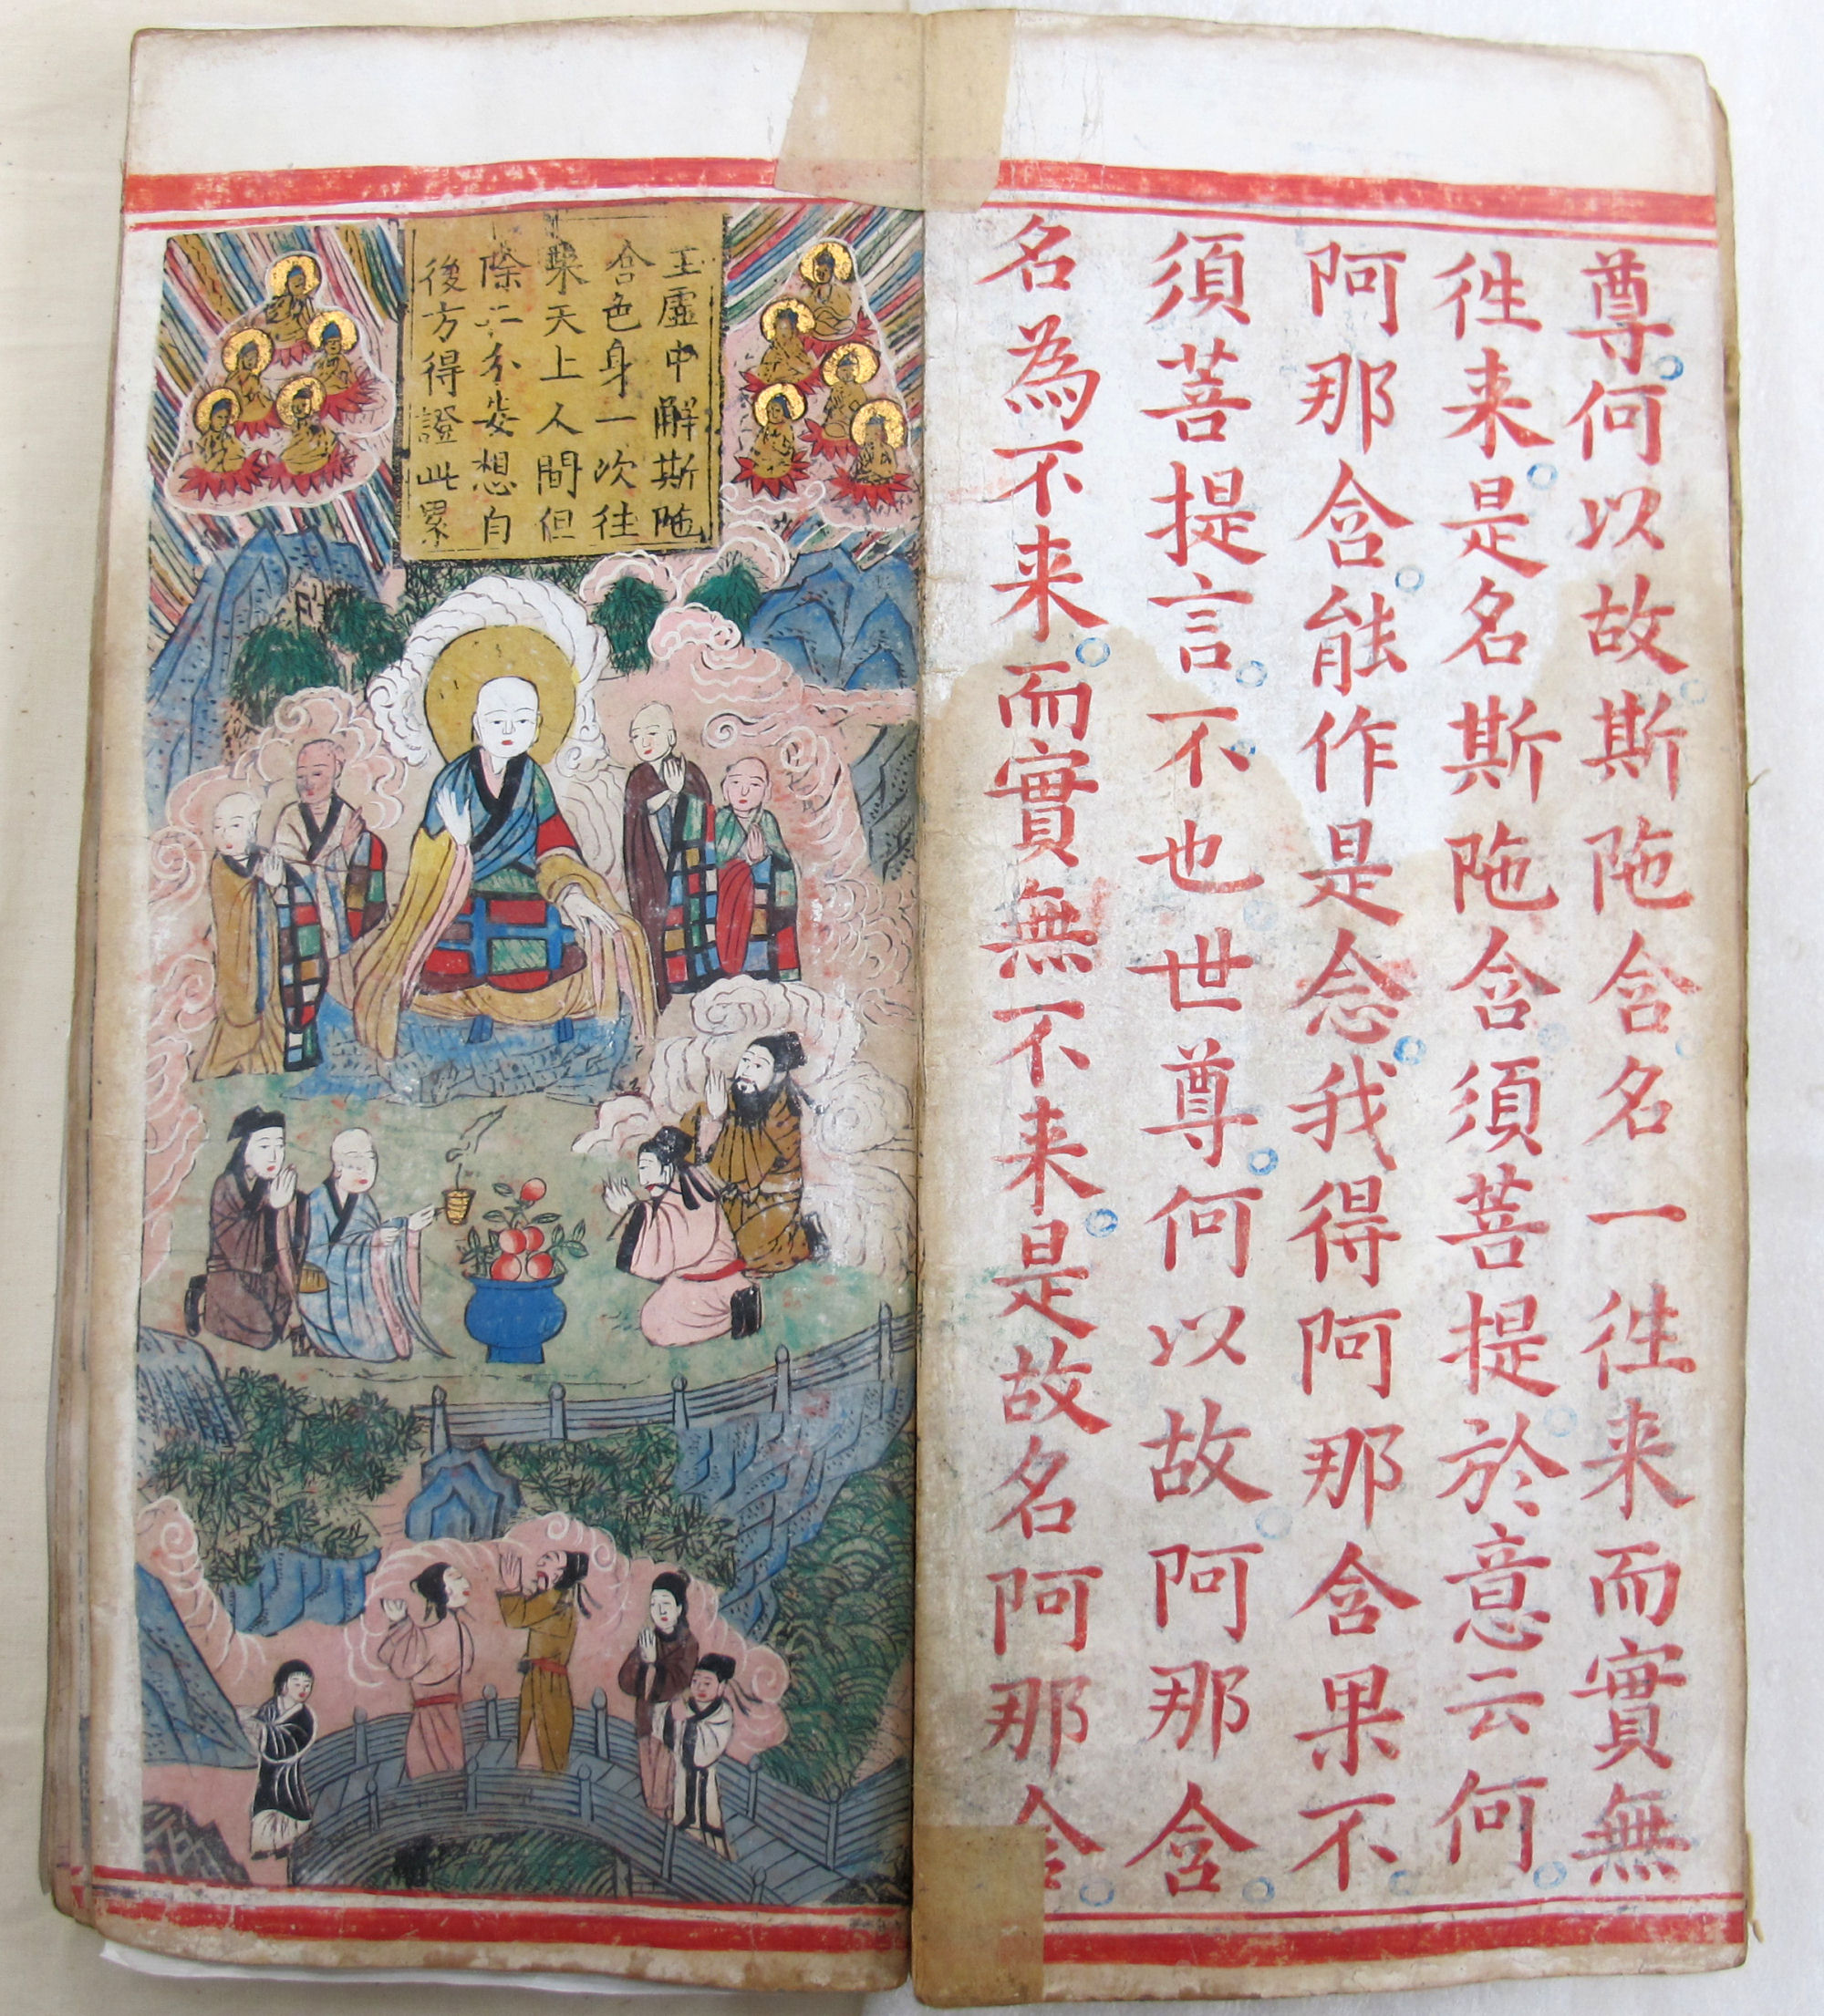 尊。何以故。斯陁含。名一徃来而實無
徃来。是名斯陁含。須菩提。於意云何。
阿那含。能作是念。我得阿那含果不。
須菩提言。不。也。世尊。何以故。阿那含。
名為不来。而實無不来。是故名阿那含。
王虛中解斯陁
含色身一次徃
来天上人間但
除二分妄想自
後方得證此果